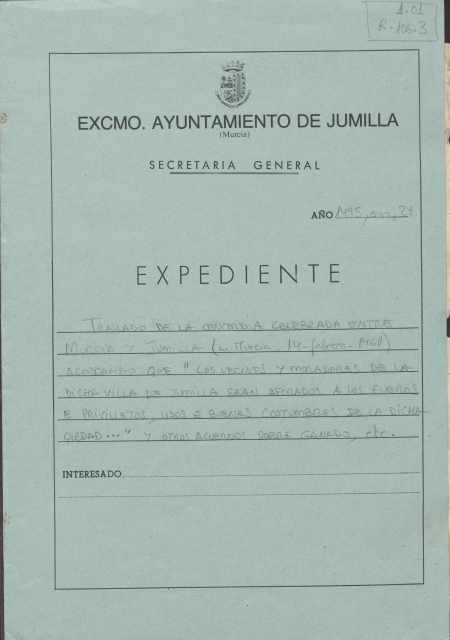 1.01
R-106-3
EXCMO. AYUNTAMIENTO DE JUMILLA
(Murcia)
SECRETARIA GENERAL
AÑO 1495, 24.
EXPEDIENTE
TRASLADO DE LA CONCORDIA CELEBRADA ENTRE
MURCIA Y JUMILLA (en Murcia, 14-febrero-)
ACORDANDO QUE "LOS VECINOS Y MORADORES DE LA
DICHA VILLA DE JUMILLA SEAN AFORADOS A LOS FUEROS
E PRIVILEJIOS, USOS E BUENAS COSTUMBRES DE LA DICHA
CIBDAD..." Y OTROS ACUERDOS SOBRE GANADO, etc.
INTERESADO